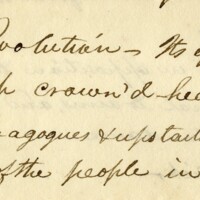 volution – Its
crown'd – he
agogues & upsta
of the people in